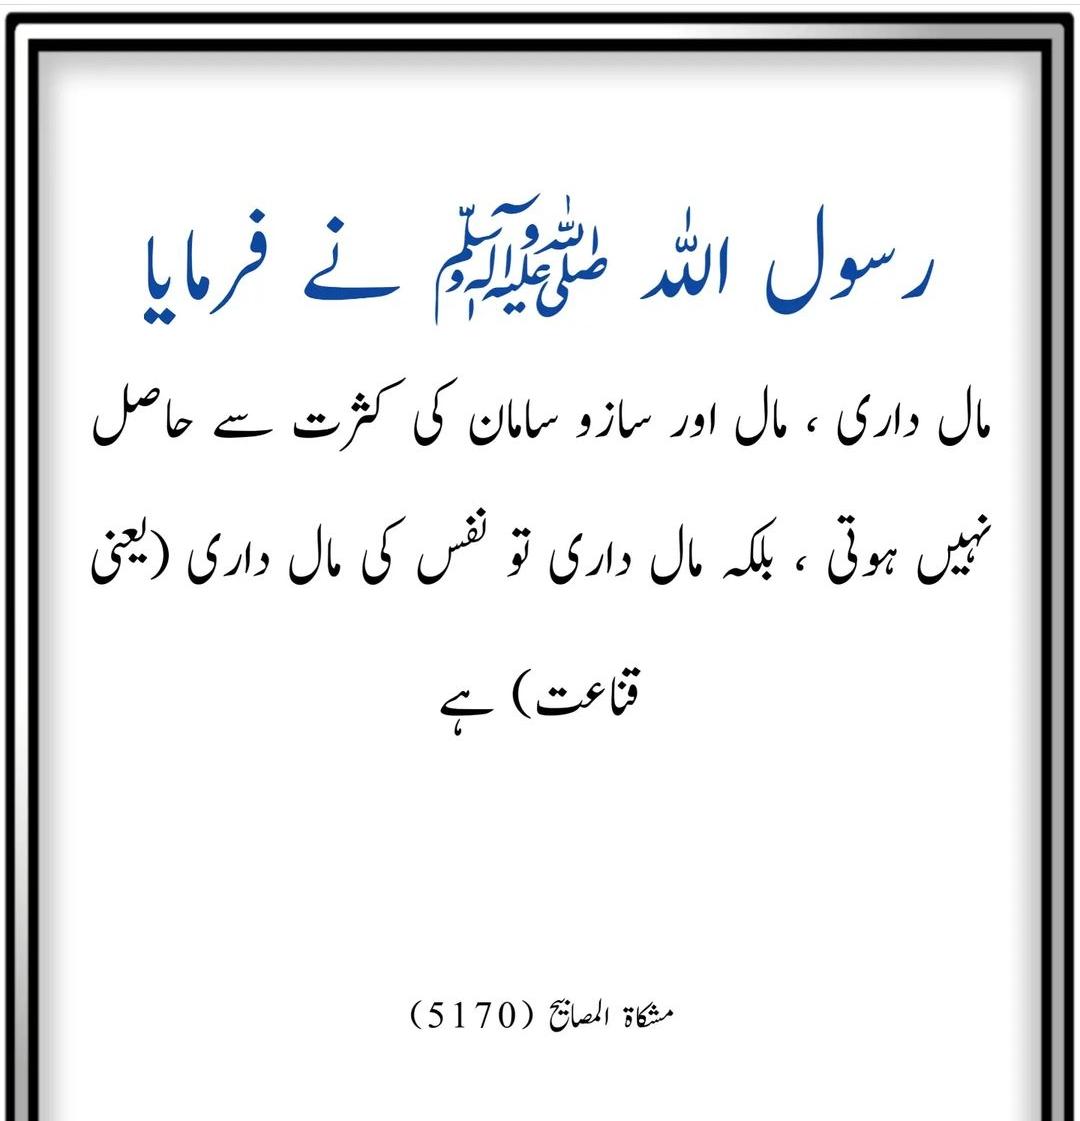 رسول اللہ ﷺ نے فرمایا
مال داری ، مال اور سازو سامان کی کثرت سے حاصل
نہیں ہوتی ، بلکہ مال داری تو نفس کی مال داری (یعنی
قناعت) ہے
مشکاۃ المصابیح (5170)